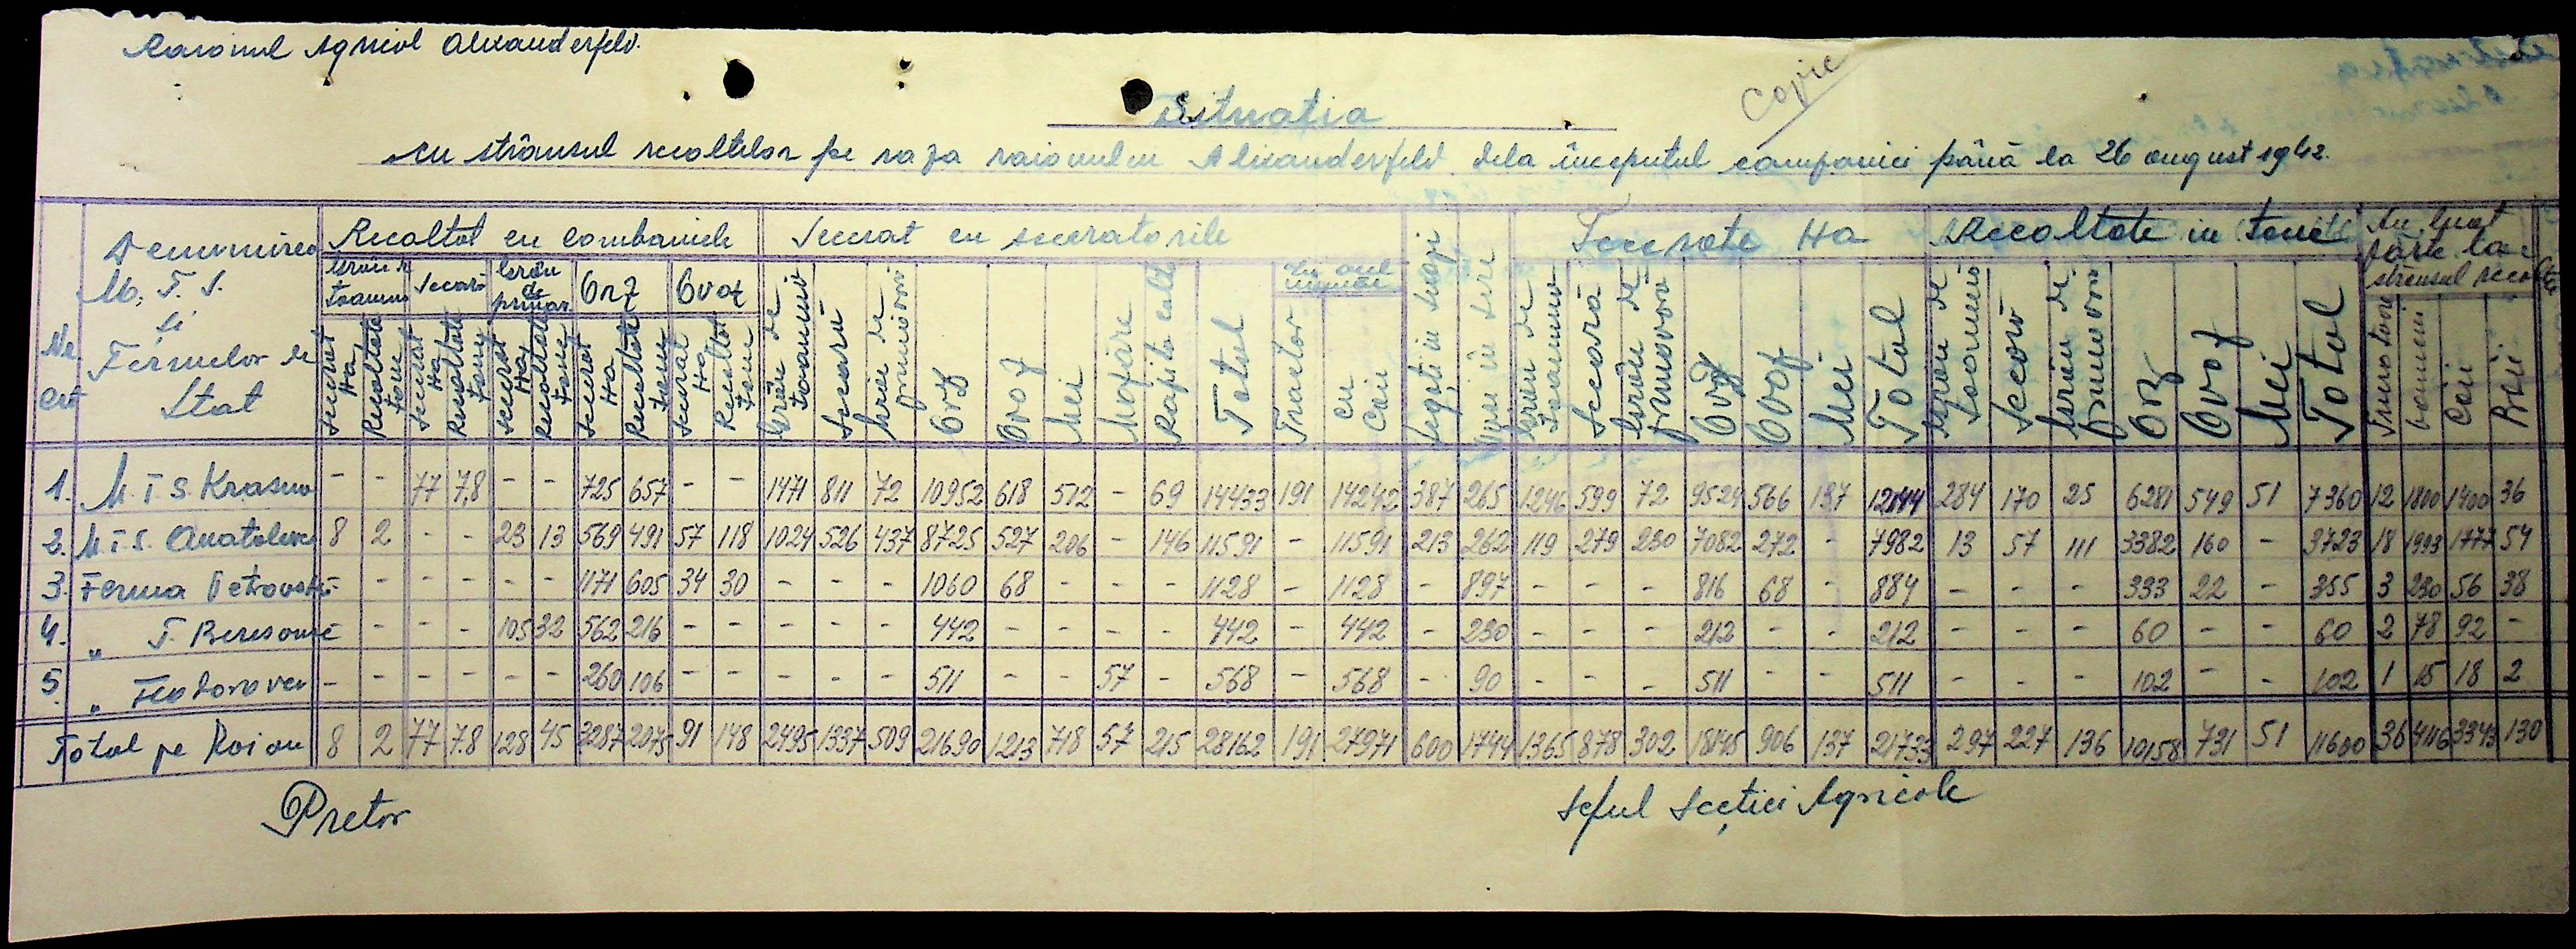 Raionul Agricol Alexanderfeld.
Copie
Situatia
cu strânsul recoltelor pe raza raionului Alixanderfeld dela începutul companiei până la 26 august 1942.
Nr crt
Denumirea M. T. S. și Fermelor de Stat
Recoltat cu combainele
Grâu de toamna Secară Grâu de primăv Orz Ovăz
Secerat Ha Recoltate tone Secerat Ha Recoltate tone Secerat Ha Recoltate tone Secerat Ha Recoltate tone Secerat Ha Recoltat tone
Secerat cu seceratorile
Grâu de toamnă Secară Grâu de primăvară Orz Ovoz Mei Mazăre Rapița Total
Din acel număr
Tractor cu Caii
Legați in snopi
Puși în șire
Treerate Ha
Grâu de toamnă Seccară Grâu de primăvară Orz Ovăz Mei Total
Recoltate in tone
Grâu de toamnă Seccară Grâu de primăvară Orz Ovoz Mei Total
Au luat parte la strânsul recoltei
oameni Caii Boii
1. M. T S. Krasna - - 77 7,8 - - 725 657 - - 1471 811 72 10952 618 512 - 69 14433 191 14242 387 265 1246 599 72 9524 566 137 12144 284 170 25 6281 549 51 7360 12 1800 1400 36
2. M. T. S. Anatolevca 8 2 - - 23 13 569 491 57 118 1024 526 437 8725 527 206 - 146 11591 - 11591 213 262 119 279 230 7082 272 - 7982 13 57 111 3382 160 - 3723 18 1993 1777 54
3. Ferma Petrovski - - - - - - 1171 605 34 30 - - - 1060 68 - - - 1128 - 1128 - 897 - - - 816 68 - 884 - - - 333 22 - 355 3 230 56 38
4. „ T. Beresanie - - - - 105 32 562 216 - - - - - 442 - - - - 442 - 442 - 230 - - - 212 - - 212 - - - 60 - - 60 2 78 92 -
5 „ Feodorovca - - - - - - 260 106 - - - - - 511 - - 57 - 568 - 568 - 90 - - - 511 - - 511 - - - 102 - - 102 1 15 18 2
Total pe Raion 8 2 77 7.8 128 45 3287 2075 91 148 2495 1337 509 21690 1213 718 57 215 28162 191 27971 600 1744 1365 878 302 18145 906 137 21733 297 227 136 10158 731 51 11600 36 4116 3343 130
Pretor
Șeful Secției Agricole